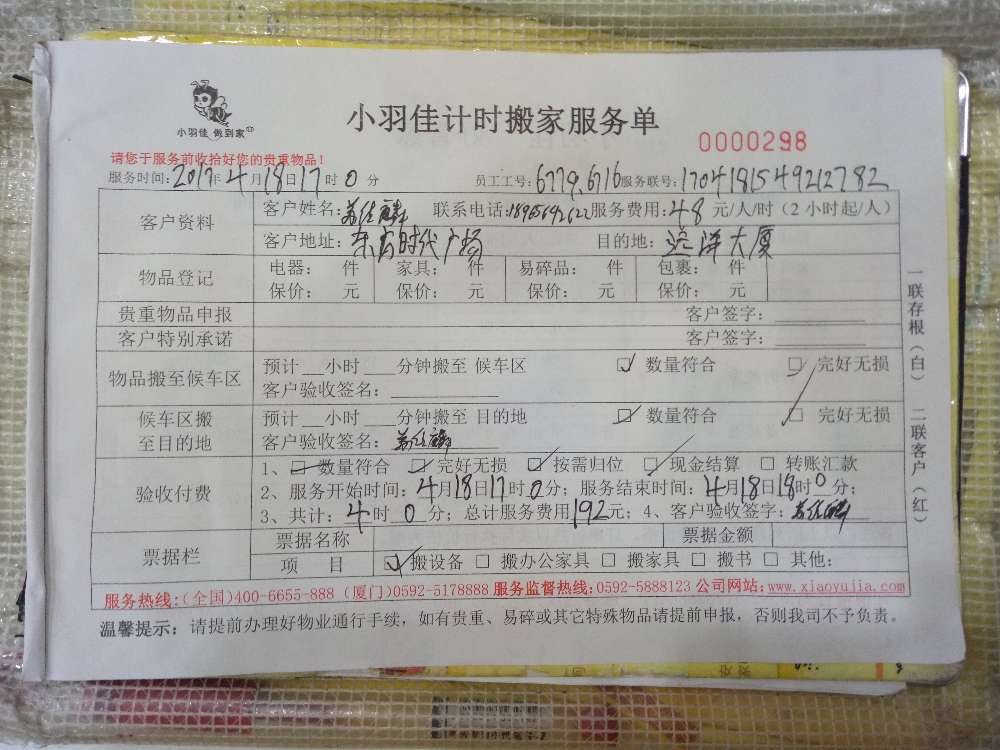 小羽佳 做到家
小羽佳计时搬家服务单
0000298
请您于服务前收拾好您的贵重物品！
服务时间：2017年4月18日17时0分 员工工号：6779.6716 服务联号：1704181549212782
客户资料 客户姓名： 联系电话： 服务费用：48元/人/时（2小时起/人）
客户地址：东方时代广场 目的地：远洋大厦
物品登记 电器： 件 家具： 件 易碎品： 件 包裹： 件
保价： 元 保价： 元 保价： 元 保价： 元
贵重物品申报 客户签字：
客户特别承诺 客户签字：
物品搬至候车区 预计__小时___分钟搬至 候车区 ☑ 数量符合 ☑ 完好无损
客户验收签名：
候车区搬至目的地 预计__小时___分钟搬至 目的地 ☑ 数量符合 ☑ 完好无损
客户验收签名：
验收付费 1、☑数量符合 ☑完好无损 ☑按需归位 ☑现金结算 □转账汇款
2、服务开始时间：4月18日17时0分；服务结束时间：4月18日18时0分；
3、共计：4时0分；总计服务费用192元；4、客户验收签字：
票据栏 票据名称 票据金额
项 目 ☑搬设备 □搬办公家具 □搬家具 □搬书 □其他：
服务热线：(全国)400-6655-888 (厦门)0592-5178888 服务监督热线：0592-5888123 公司网站：www.xiaoyujia.com
温馨提示：请提前办理好物业通行手续，如有贵重、易碎或其它特殊物品请提前申报，否则我司不予负责。
一联存根（白） 二联客户（红）